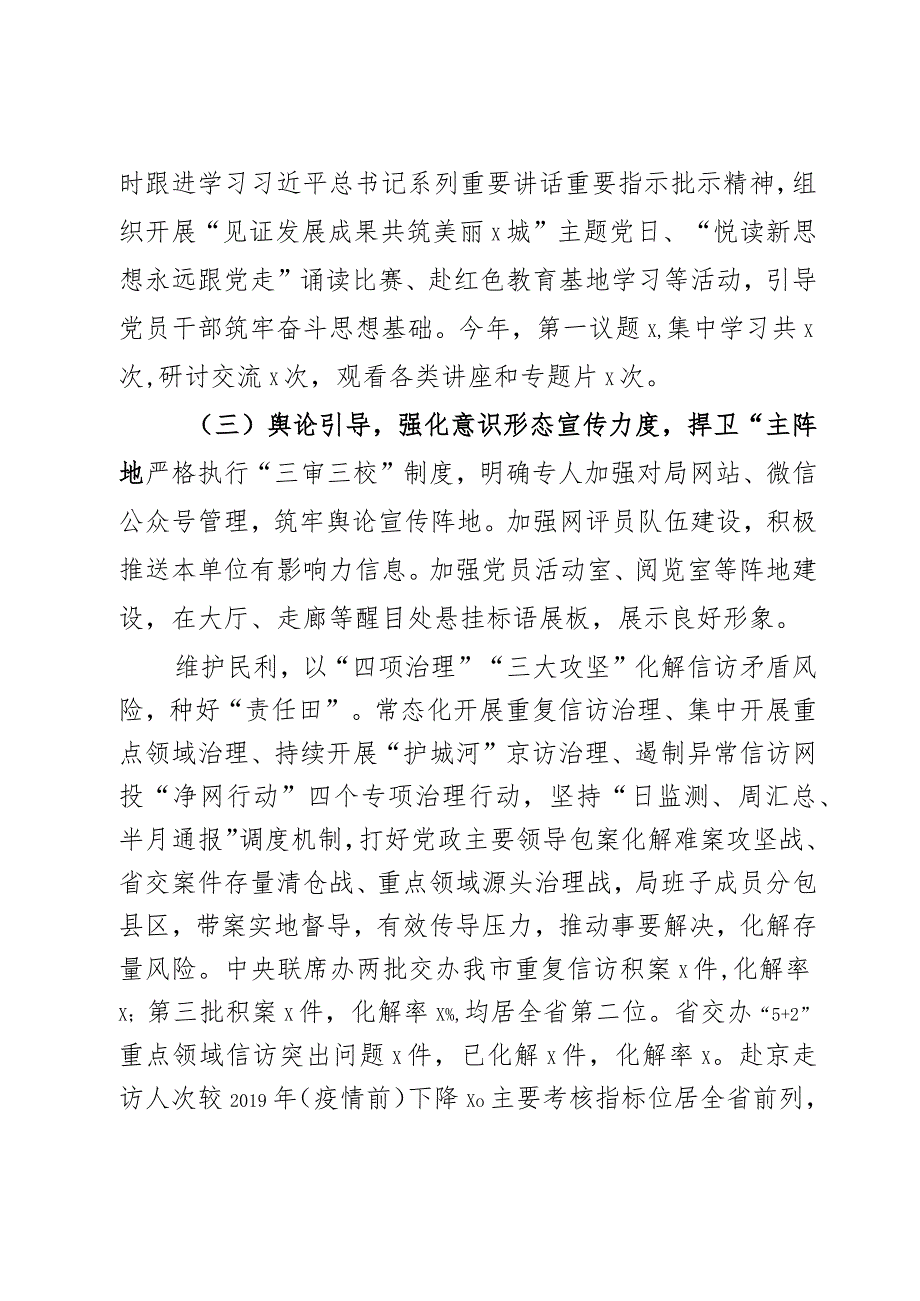 时跟进学习习近平总书记系列重要讲话重要指示批示精神,组
织开展“见证发展成果共筑美丽x城”主题党日、“悦读新思
想永远跟党走”诵读比赛、赴红色教育基地学习等活动，引导
党员干部筑牢奋斗思想基础。今年，第一议题x,集中学习共x
次,研讨交流x次，观看各类讲座和专题片x次。
（三）舆论引导，强化意识形态宣传力度，捍卫“主阵
地严格执行“三审三校”制度，明确专人加强对局网站、微信
公众号管理，筑牢舆论宣传阵地。加强网评员队伍建设，积极
推送本单位有影响力信息。加强党员活动室、阅览室等阵地建
设，在大厅、走廊等醒目处悬挂标语展板，展示良好形象。
维护民利，以“四项治理”“三大攻坚”化解信访矛盾风
险，种好“责任田”。常态化开展重复信访治理、集中开展重
点领域治理、持续开展“护城河”京访治理、遏制异常信访网
投“净网行动”四个专项治理行动，坚持“日监测、周汇总、
半月通报”调度机制,打好党政主要领导包案化解难案攻坚战、
省交案件存量清仓战、重点领域源头治理战，局班子成员分包
县区，带案实地督导，有效传导压力，推动事要解决，化解存
量风险。中央联席办两批交办我市重复信访积案X件,化解率
X；第三批积案X件，化解率X%,均居全省第二位。省交办“5+2”
重点领域信访突出问题x件，已化解x件，化解率x。赴京走
访人次较2019年(疫情前)下降Xo主要考核指标位居全省前列，